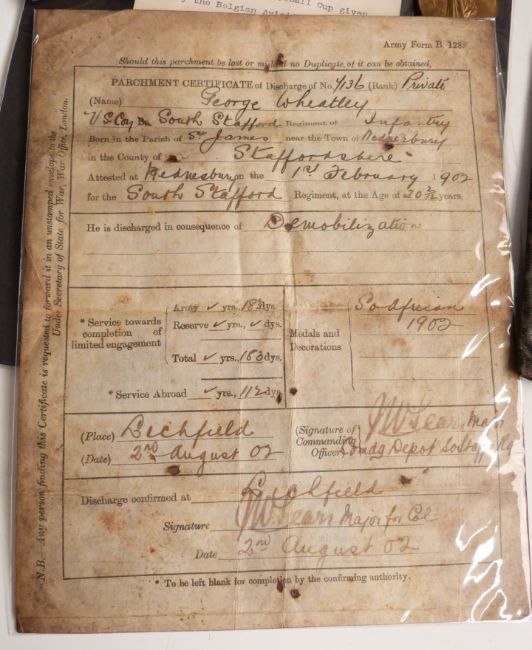 all Cup given
the Belgian
Army Form B. 128
Should this parchment be lost or mislaid no Duplicate of it can be obtained.
PARCHMENT CERTIFICATE of Discharge of No. 7136 (Rank) Private
(Name) George Wheatley
V S Coy Bn South Stafford Regiment of Infantry
Born in the Parish of St James near the Town of Wednesbury
in the County of Staffordshire
Attested at Wednesbury on the 1st February 1902
for the South Stafford Regiment, at the Age of 20 years.
He is discharged in consequence of Demobilization
* Service towards completion of limited engagement
Army ✓ yrs. 183 dys.
Reserve ✓ yrs, ✓ dys.
Total ✓ yrs., 183 dys.
* Service Abroad ✓ yrs., 112 dys.
Medals and Decorations
So African 1902
(Place) Lichfield
(Date) 2nd August 02
(Signature of Commanding Officer) Major
Comdg Depot So Staff
Discharge confirmed at Lichfield
Signature Major for Col
Date 2nd August 02
* To be left blank for completion by the confirming authority.
N.B.—Any person finding this Certificate is requested to forward it in an unstamped envelope to the
Under Secretary of State for War, War Office, London.